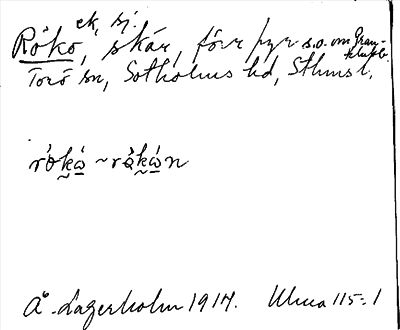 ek, sj.
Rökö, skär, förr fyr s.o. om Gran-
klubb.
Torö sn, Sotholms hd, Sthms l.
rö̀kö̀ ~ rö̀kö̀n
Å. Lagerholm 1917. Ulma 115:1